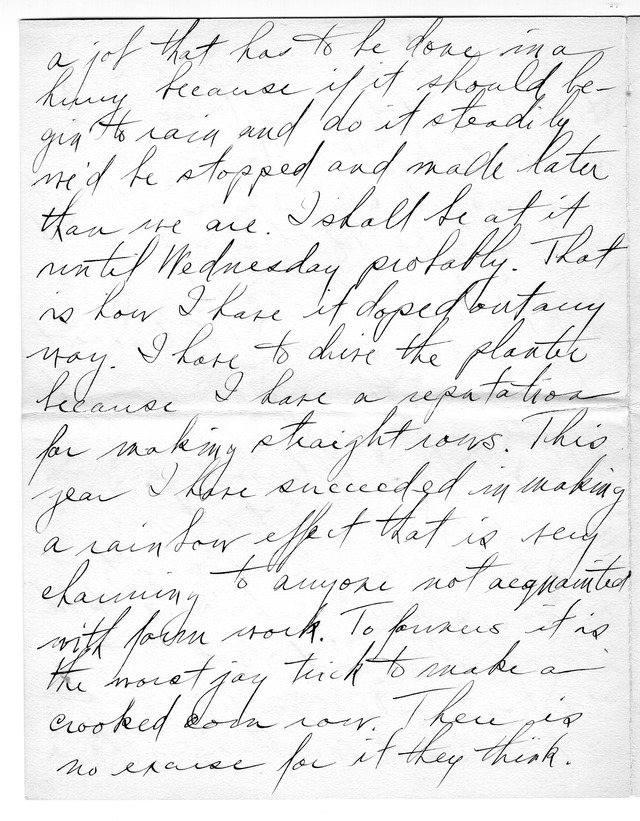 a job that has to be done in a
hurry because if it should be-
gin to rain and do it steadily
we'd be stopped and made later
than we are. I shall be at it
until Wednesday probably. That
is how I have it doped out any
way. I have to drive the planter
because I have a reputation
for making straight rows. This
year I have succeeded in making
a rainbow effect that is very
charming to anyone not acquainted
with farm work. To farmers it is
the worst jay trick to make a
crooked corn row. There is
no excuse for it they think.